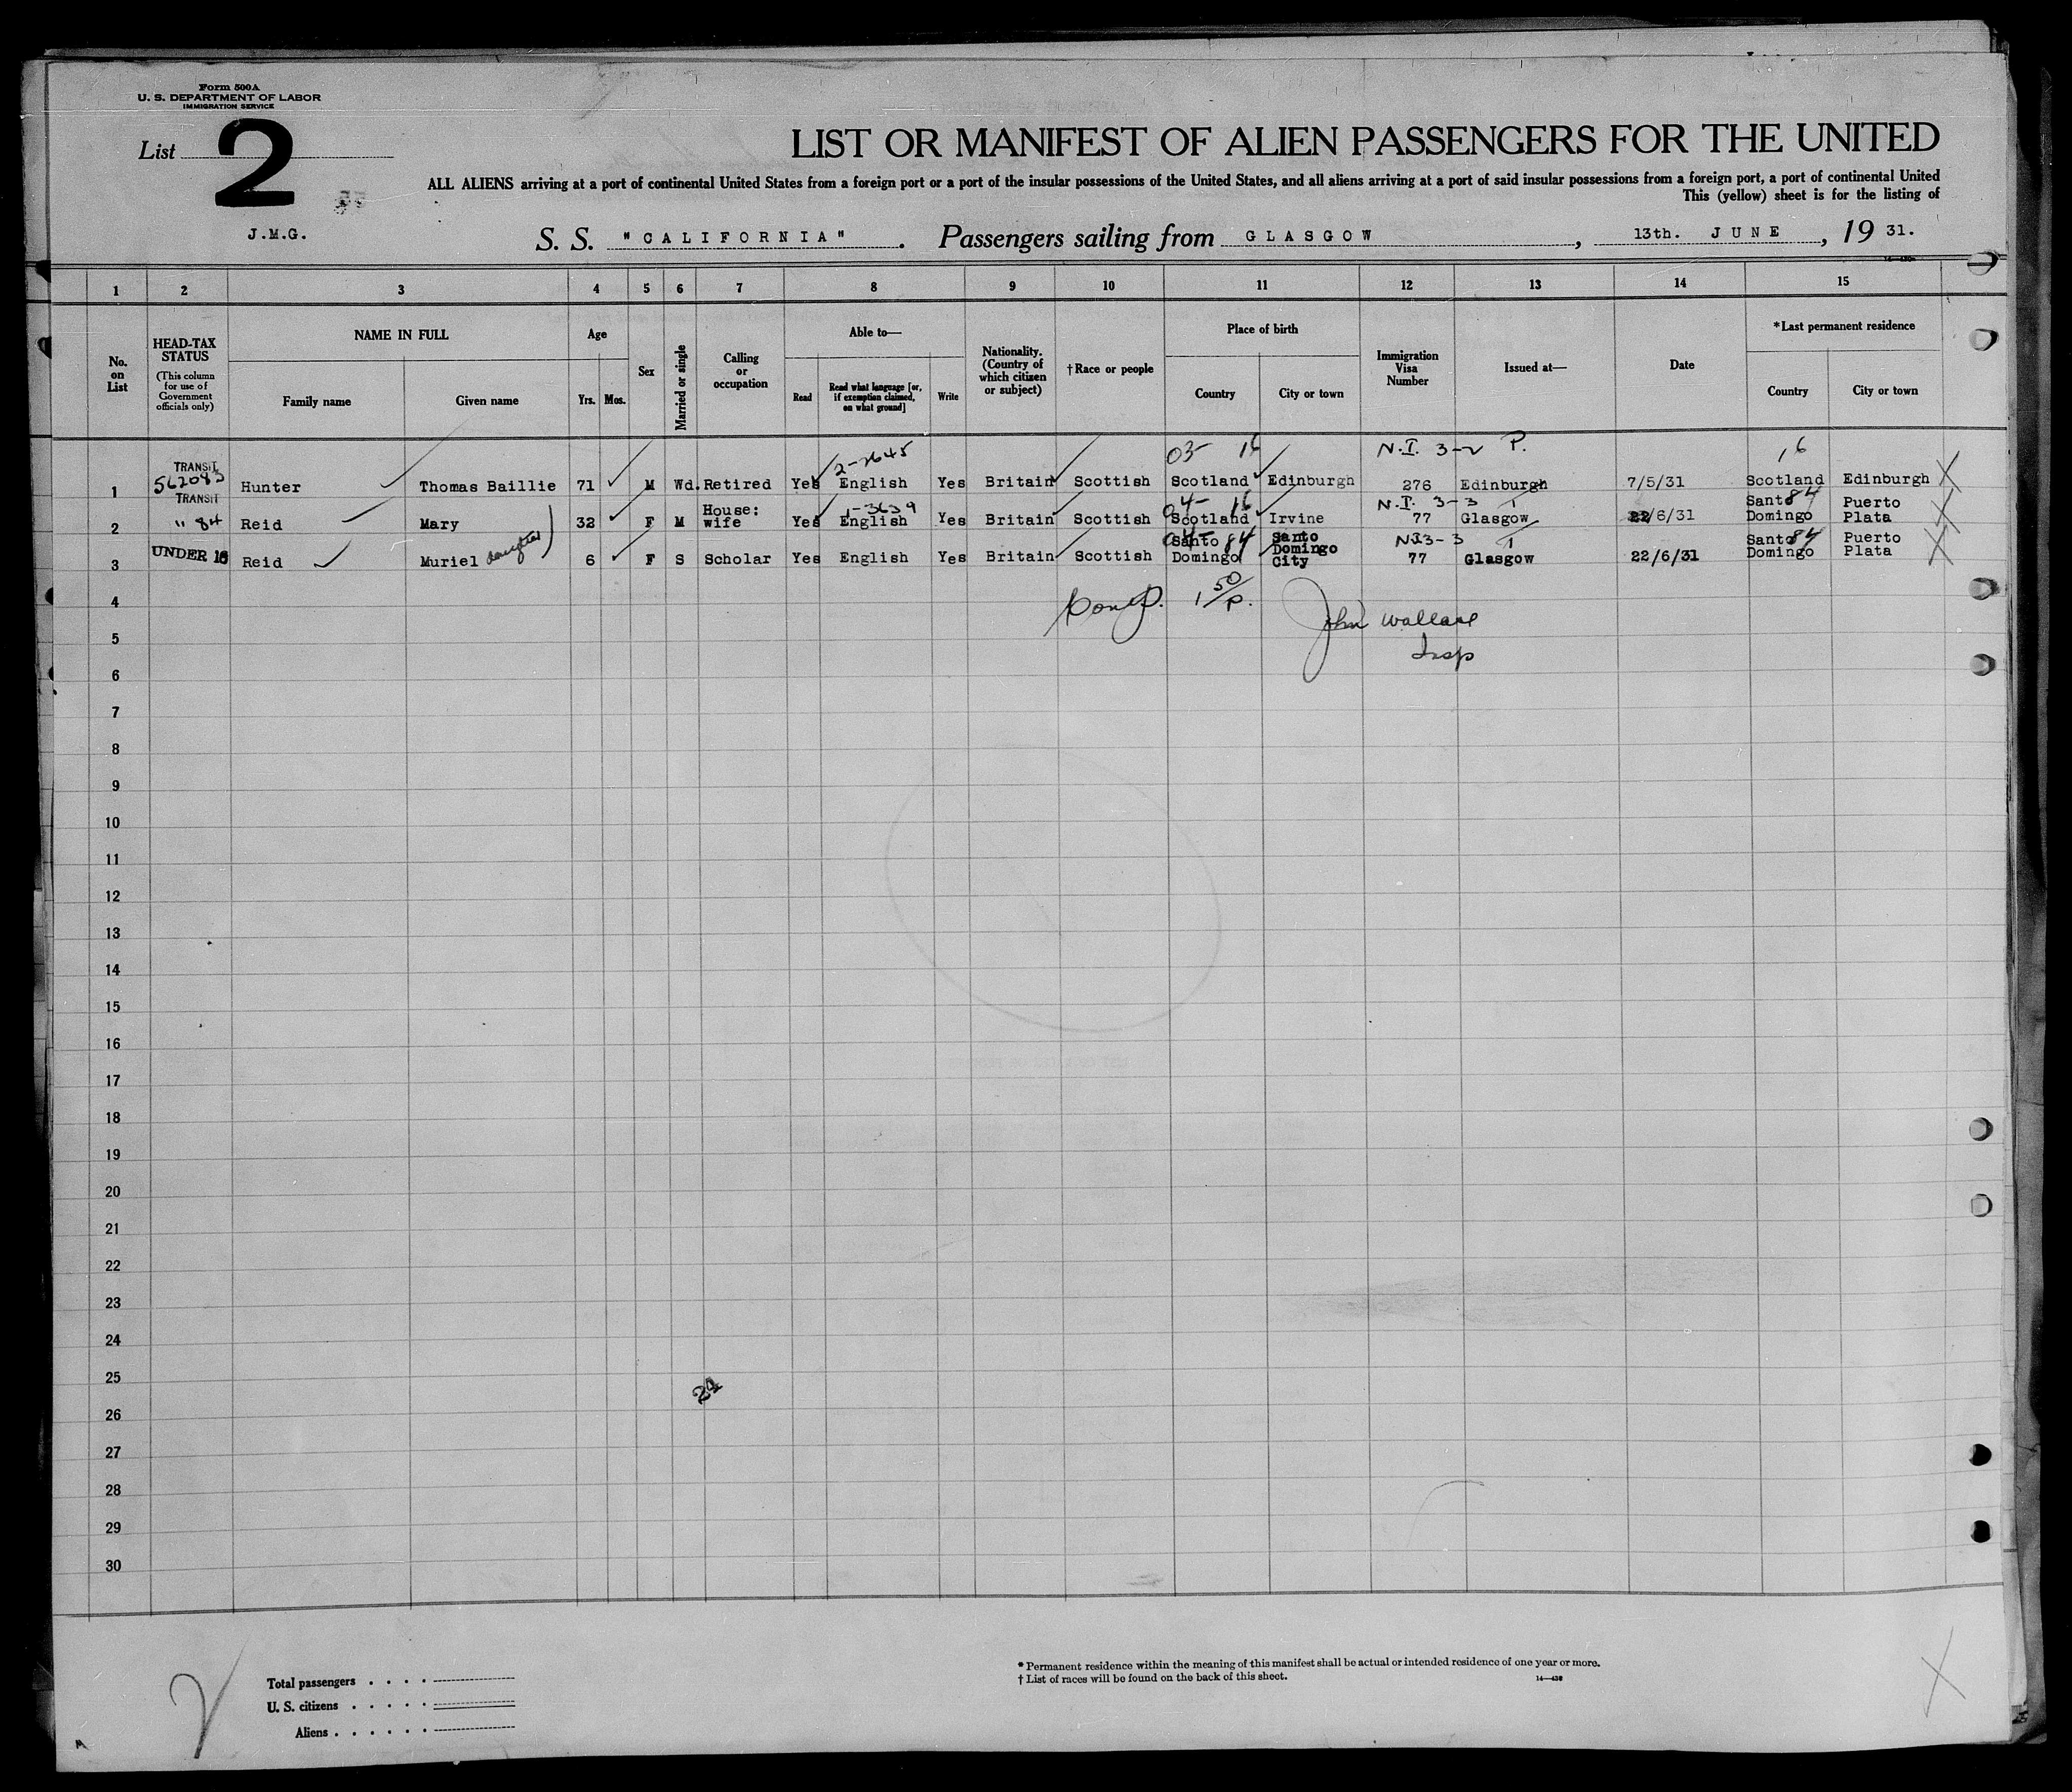 Form 500A
U. S. DEPARTMENT OF LABOR
IMMIGRATION SERVICE
List 2
J.M.G.
LIST OR MANIFEST OF ALIEN PASSENGERS FOR THE UNITED
ALL ALIENS arriving at a port of continental United States from a foreign port or a port of the insular possessions of the United States, and all aliens arriving at a port of said insular possessions from a foreign port, a port of continental United
This (yellow) sheet is for the listing of
S. S. "CALIFORNIA". Passengers sailing from GLASGOW, 13th. JUNE, 19 31.
1 2 3 4 5 6 7 8 9 10 11 12 13 14 15
No. on List
HEAD-TAX STATUS
(This column for use of Government officials only)
NAME IN FULL
Family name
Given name
Age
Yrs. Mos.
Sex
Married or single
Calling or occupation
Able to—
Read
Read what language [or, if exemption claimed, on what ground]
Write
Nationality. (Country of which citizen or subject)
†Race or people
Place of birth
Country
City or town
Immigration Visa Number
Issued at—
Date
*Last permanent residence
Country
City or town
2-2645 03- 16 N.I. 3-2 P. 16
1 TRANSIT 562083 Hunter Thomas Baillie 71 M Wd. Retired Yes English Yes Britain Scottish Scotland Edinburgh 276 Edinburgh 7/5/31 Scotland Edinburgh
1-3639 04- 16 N.I. 3-3 T 84
2 TRANSIT " 84 Reid Mary 32 F M House: wife Yes English Yes Britain Scottish Scotland Irvine 77 Glasgow 22/6/31 Santo Domingo Puerto Plata
04- 84 NI3-3 T 84
3 UNDER 16 Reid Muriel daughter 6 F S Scholar Yes English Yes Britain Scottish Santo Domingo Santo Domingo City 77 Glasgow 22/6/31 Santo Domingo Puerto Plata
4
John Wallace
5
Insp
6
7
8
9
10
11
12
13
14
15
16
17
18
19
20
21
22
23
24
25
24
26
27
28
29
30
Total passengers
U. S. citizens
Aliens
* Permanent residence within the meaning of this manifest shall be actual or intended residence of one year or more.
† List of races will be found on the back of this sheet.
14—430